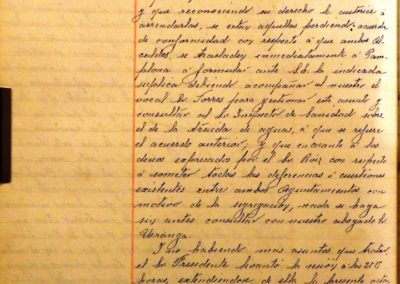 y que reconociendo su derecho le autorice a
arrendarlas, se están aquellas perdiendo; acuerda
de conformidad con respecto á que ambos Al-
caldes, se trasladen inmediatamente á Pam-
plona á formular ante la indicada
súplica debiendo acompañar al nuestro el
vocal Sr Torres para gestionar este asunto y
consultar al Sr Inspector de Sanidad sobre
el de la traida de aguas, á que se refiere
el acuerdo anterior; y que en cuanto á los
deseos expresados por el Sr Ruiz con respecto
á someter todas las diferencias ó cuestiones
existentes entre ambos Ayuntamientos con
motivo de la segregación, nada se haga
sin antes consultar con nuestro abogado Sr
Uranga.
Y no habiendo mas asuntos que tratar
el Sr Presidente levantó la sesión a las
horas, extendiendose de ella la presente acta